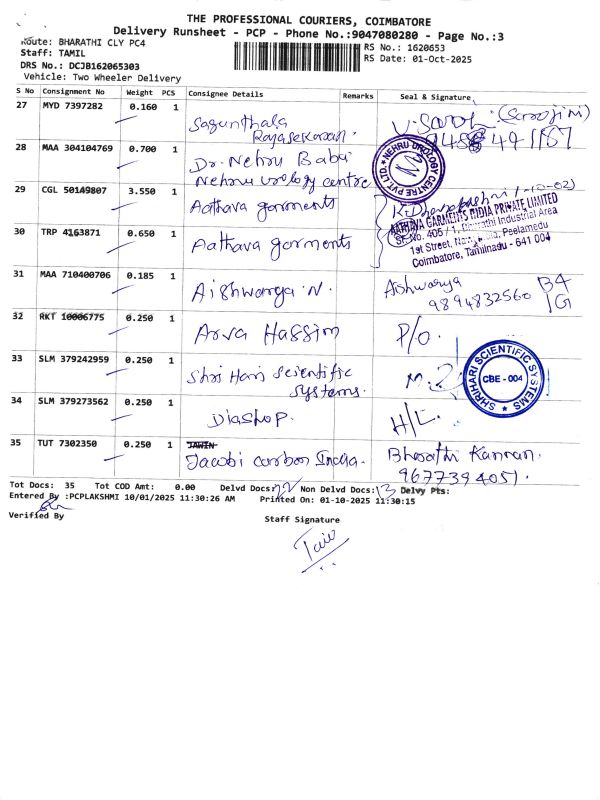 THE PROFESSIONAL COURIERS, COIMBATORE
Delivery Runsheet - PCP - Phone No.:9047080280 - Page No.:3
Route: BHARATHI CLY PC4
RS No.: 1620653
Staff: TAMIL
RS Date: 01-Oct-2025
DRS No.: DCJB162065303
Vehicle: Two Wheeler Delivery
S No Consignment No Weight PCS Consignee Details Remarks Seal & Signature
27 MYD 7397282 0.160 1 Sagunthala
Rajasekaran.
28 MAA 304104769 0.700 1 Dr. Nehru Babu
Nehru urology centre
NEHRU UROLOGY CENTRE PVT.LTD.
29 CGL 50149807 3.550 1 Aathava garments
AATHAVA GARMENTS INDIA PRIVATE LIMITED
SF No. 405 / 1, Bharathi Industrial Area
1st Street, Peelamedu
Coimbatore, Tamilnadu - 641 004
30 TRP 4163871 0.650 1 Aathava garments
31 MAA 710400706 0.185 1 Aishwarya N. Aishwarya B4
9894832560 IG
32 RKT 10006775 0.250 1 Arva Hassim P/O.
33 SLM 379242959 0.250 1 Shri Hari Scientific
Systems.
SHRIHARI SCIENTIFIC SYSTEMS
CBE - 004
34 SLM 379273562 0.250 1 Diashop. H/L.
35 TUT 7302350 0.250 1 Jacobi carbon India. Bharathi Kannan.
9677394051.
Tot Docs: 35 Tot COD Amt: 0.00 Delvd Docs: 22 Non Delvd Docs: 13 Delvy Pts:
Entered By :PCPLAKSHMI 10/01/2025 11:30:26 AM Printed On: 01-10-2025 11:30:15
Verified By
Staff Signature